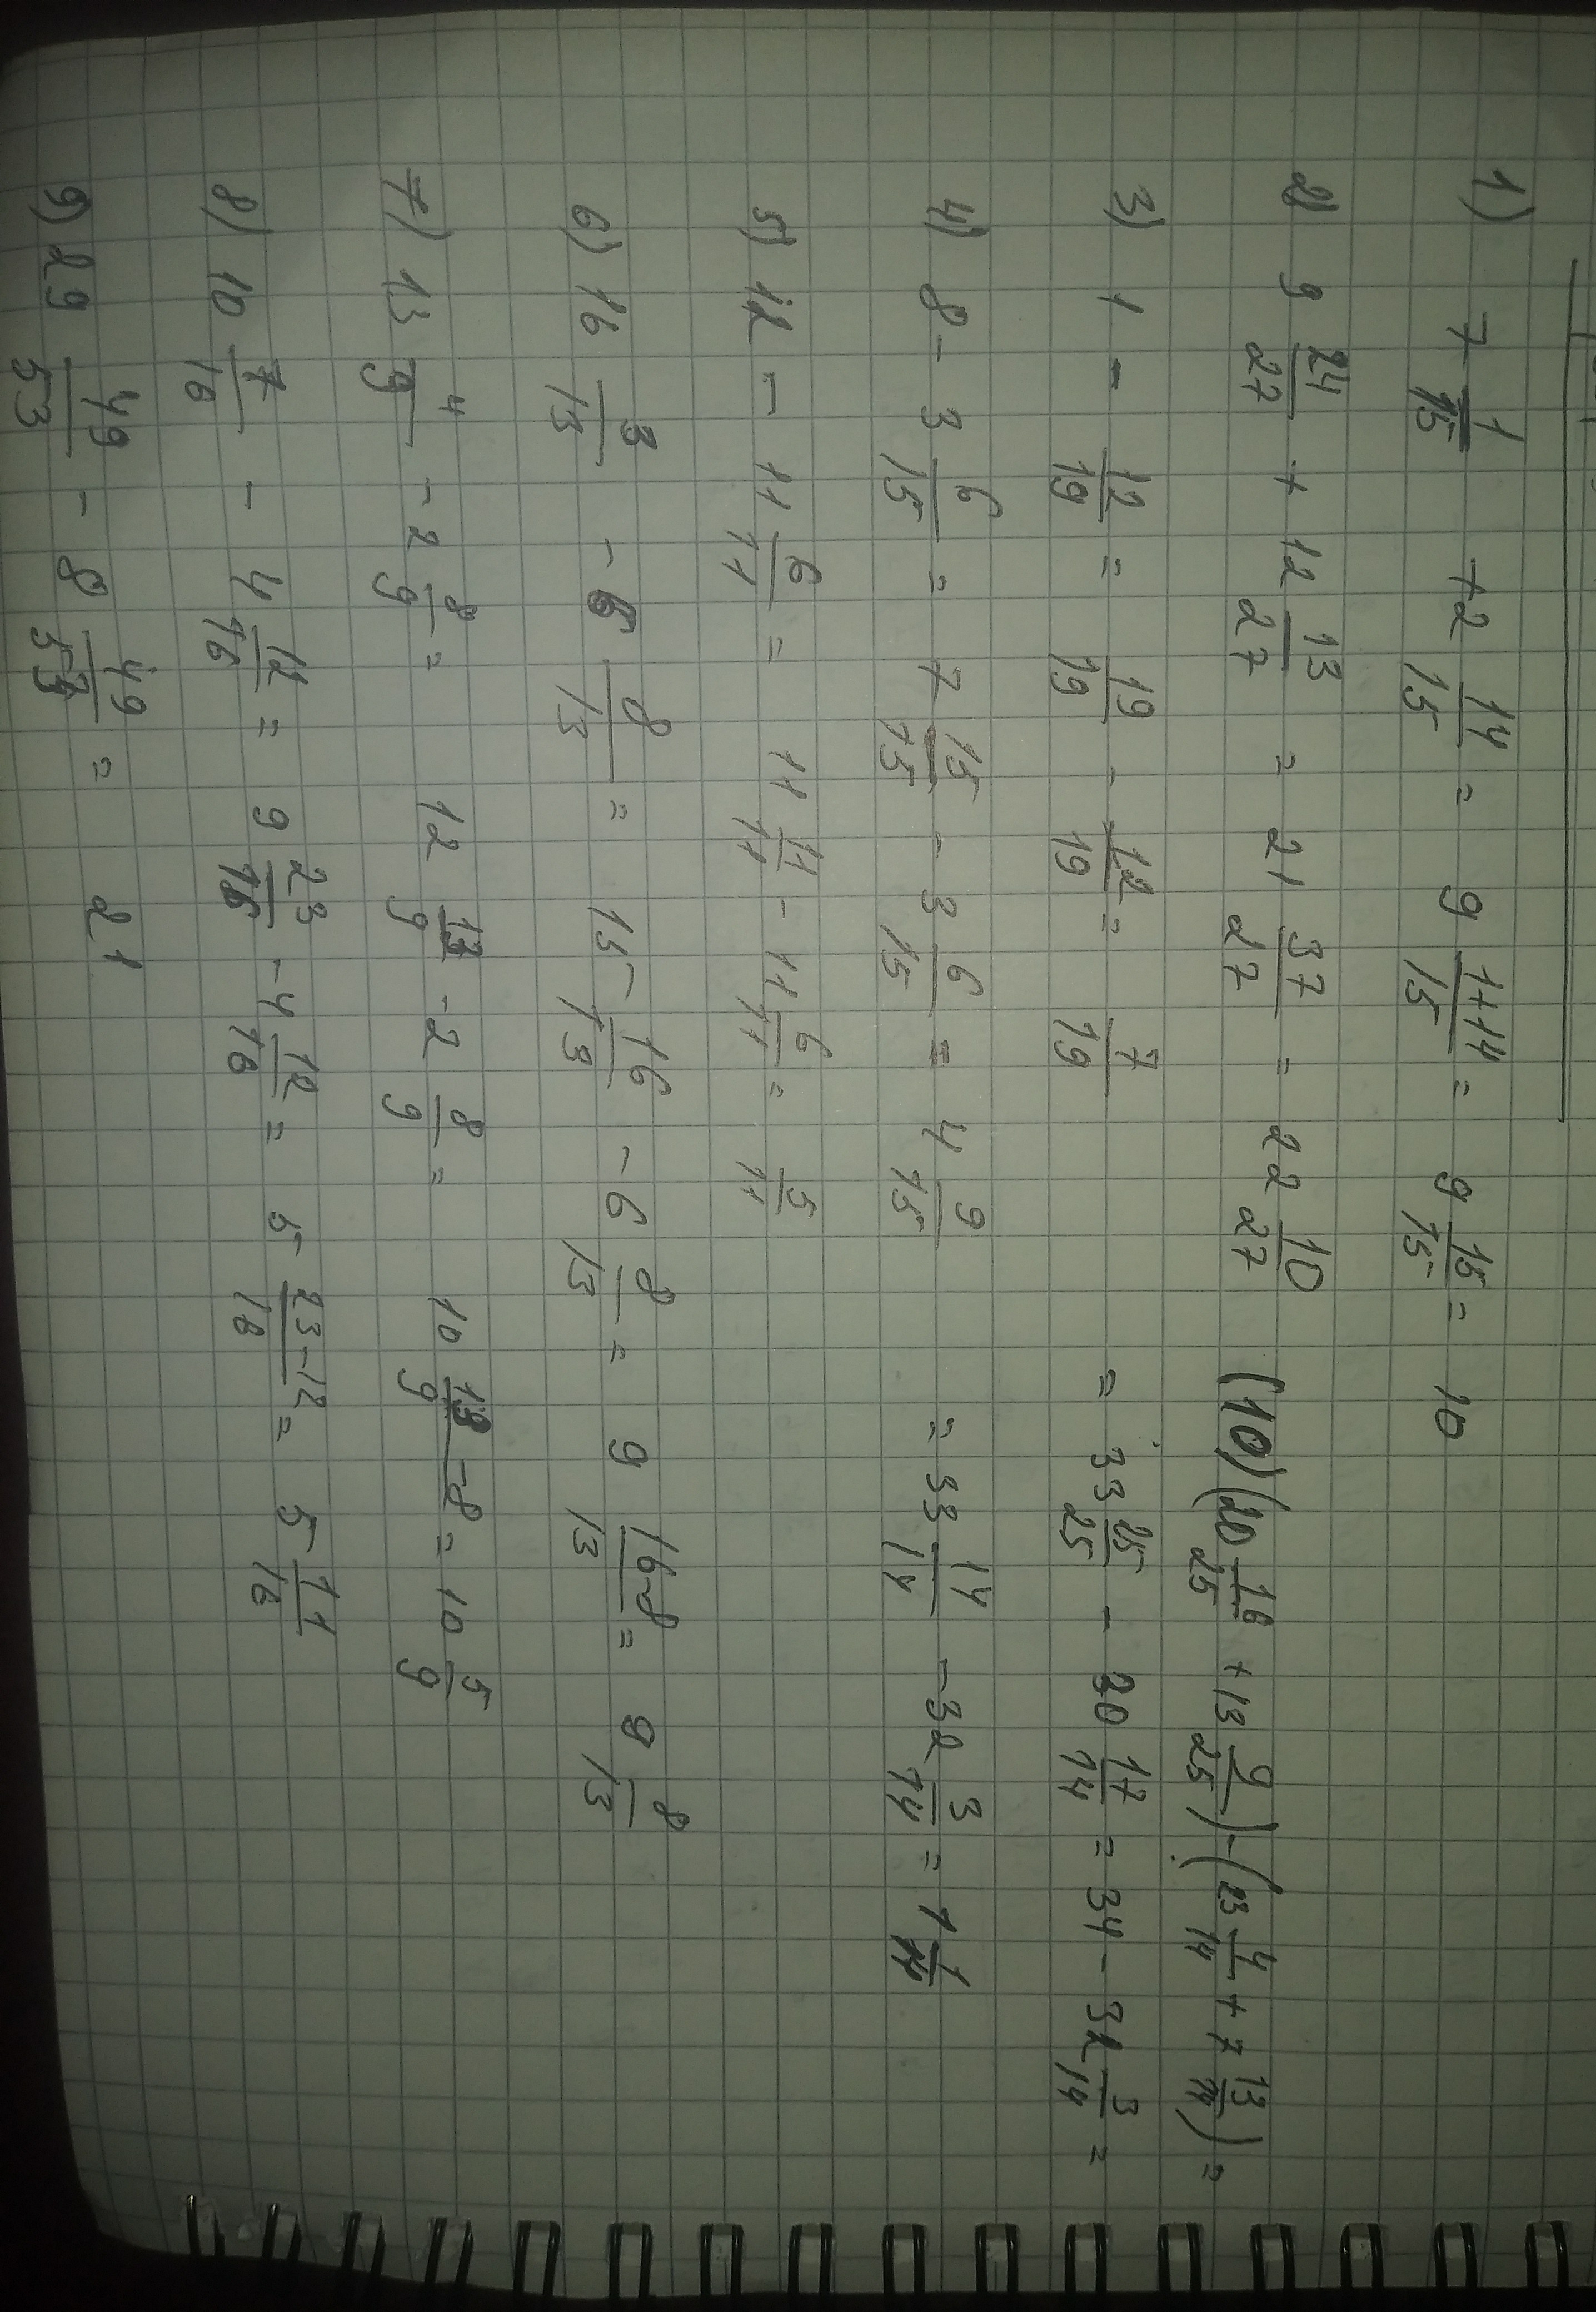 1) 7 1/15 + 2 14/15 = 9 (1+14)/15 = 9 15/15 = 10
2) 9 24/27 + 12 13/27 = 21 37/27 = 22 10/27
3) 1 - 12/19 = 19/19 - 12/19 = 7/19
4) 8 - 3 6/15 = 7 15/15 - 3 6/15 = 4 9/15
5) 12 - 11 6/11 = 11 11/11 - 11 6/11 = 5/11
6) 16 3/13 - 6 8/13 = 15 16/13 - 6 8/13 = 9 (16-8)/13 = 9 8/13
7) 13 4/9 - 2 8/9 = 12 13/9 - 2 8/9 = 10 (13-8)/9 = 10 5/9
8) 10 7/16 - 4 12/16 = 9 23/16 - 4 12/16 = 5 (23-12)/16 = 5 11/16
9) 29 49/53 - 8 49/53 = 21
(10) (20 16/25 + 13 9/25) - (23 4/14 + 7 13/14) =
= 33 25/25 - 30 17/14 = 34 - 32 3/14 =
= 33 14/14 - 32 3/14 = 1 1/14